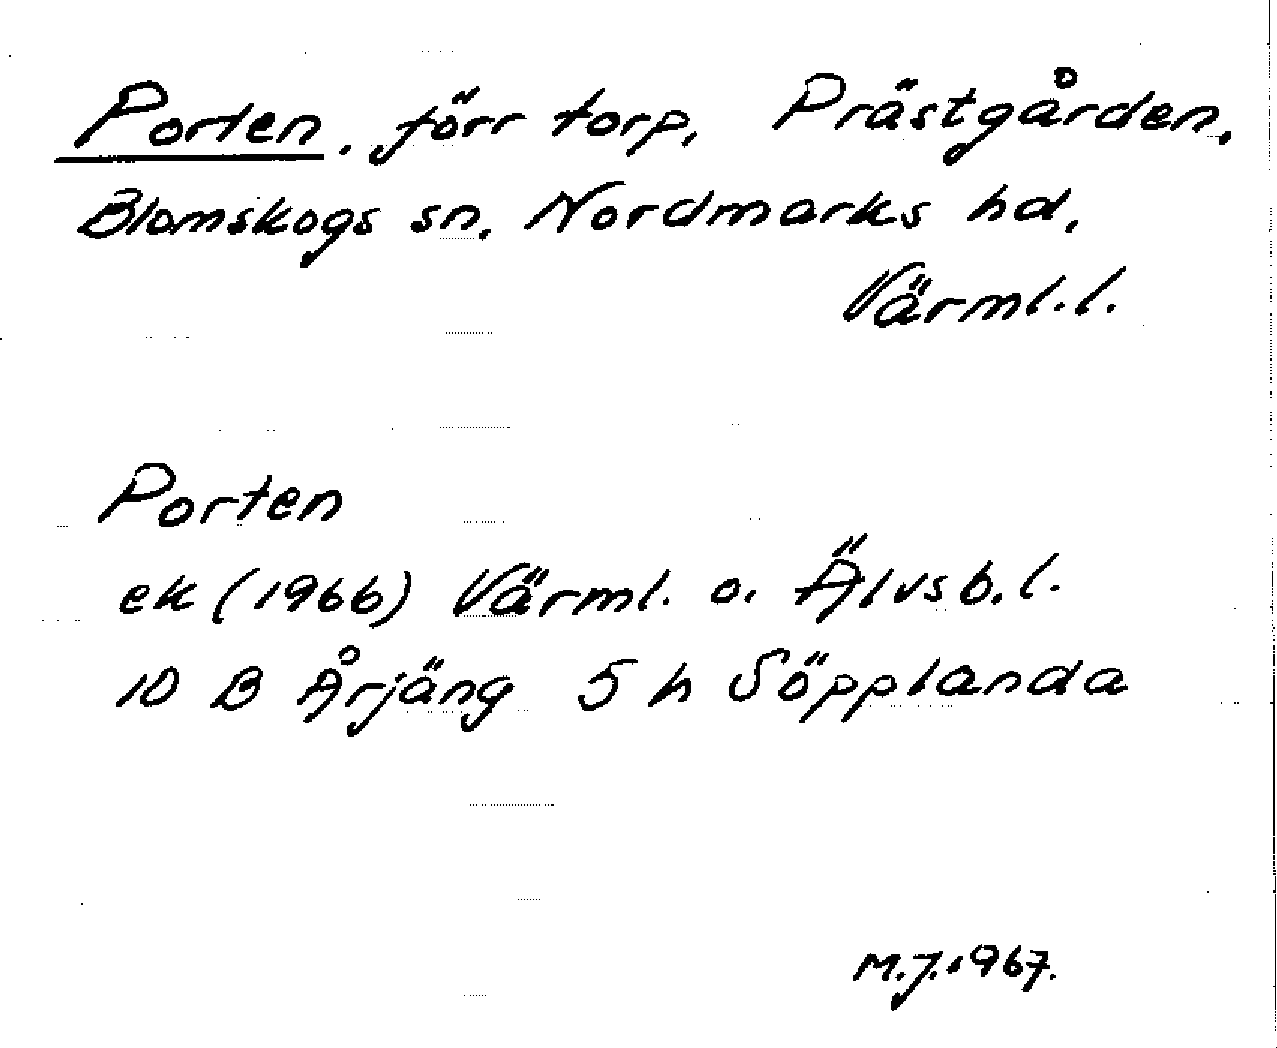 Porten, förr torp, Prästgården,
Blomskogs sn, Nordmarks hd,
Värml. l.
Porten
ek (1966) Värml. o. Älvsb. l.
10 B Årjäng 5 h Söpplanda
M.J. 1967.